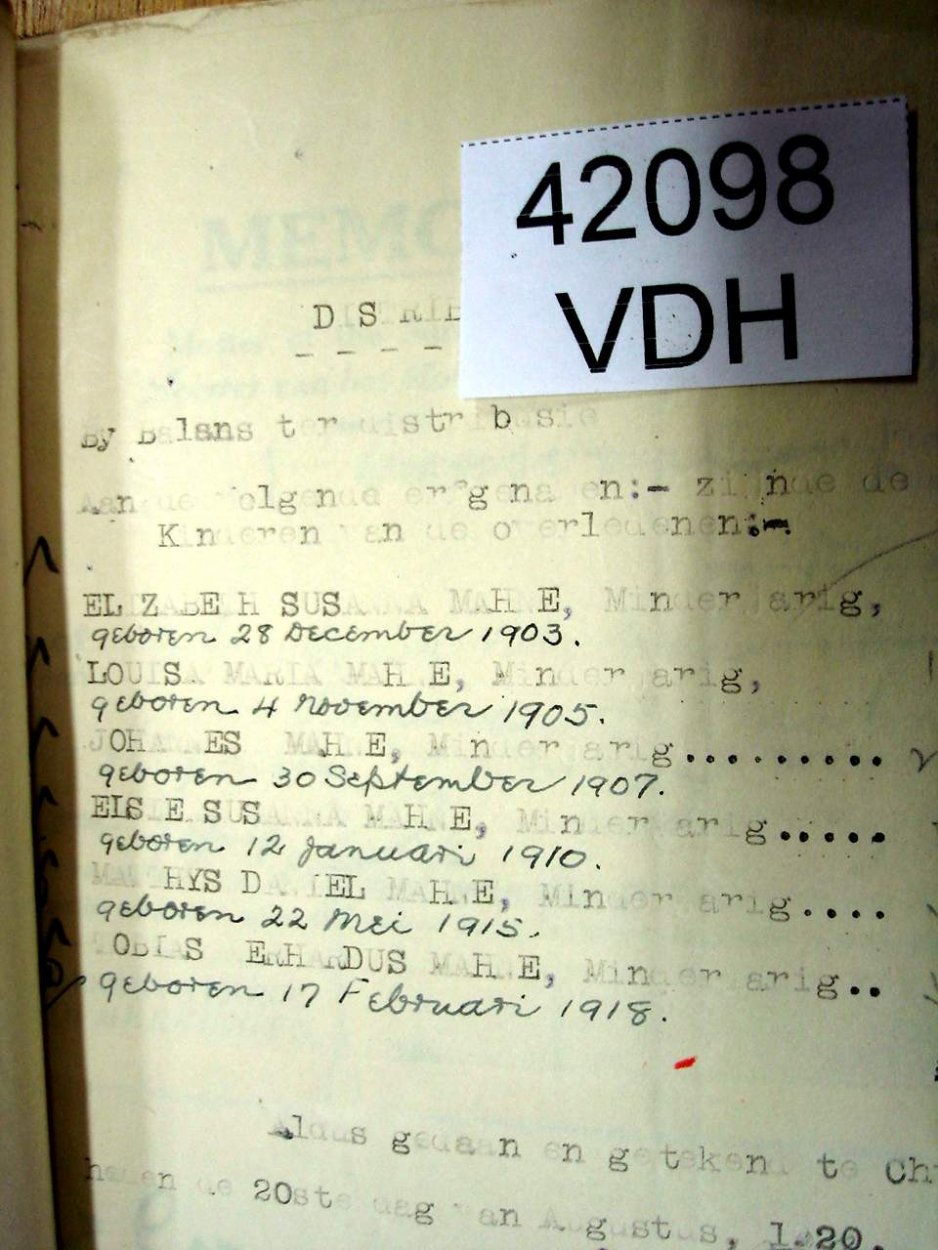 42098
VDH
MEMO
DISTRIB
By Balans ter distribusie
Aan de volgende erfgenamen:- zijnde de
Kinderen van de overledenen:-
ELIZABETH SUSANNA MAHNE, Minderjarig,
geboren 28 December 1903.
LOUISA MARIA MAHNE, Minderjarig,
geboren 4 November 1905.
JOHANNES MAHNE, Minderjarig.........
geboren 30 September 1907.
ELSIE SUSANNA MAHNE, Minderjarig.....
geboren 12 Januari 1910.
MATTHYS DANIEL MAHNE, Minderjarig....
geboren 22 Mei 1915.
TOBIAS ERHARDUS MAHNE, Minderjarig..
geboren 17 Februari 1918.
Aldus gedaan en getekend te Ch
heden de 20ste dag van Augustus, 1920.